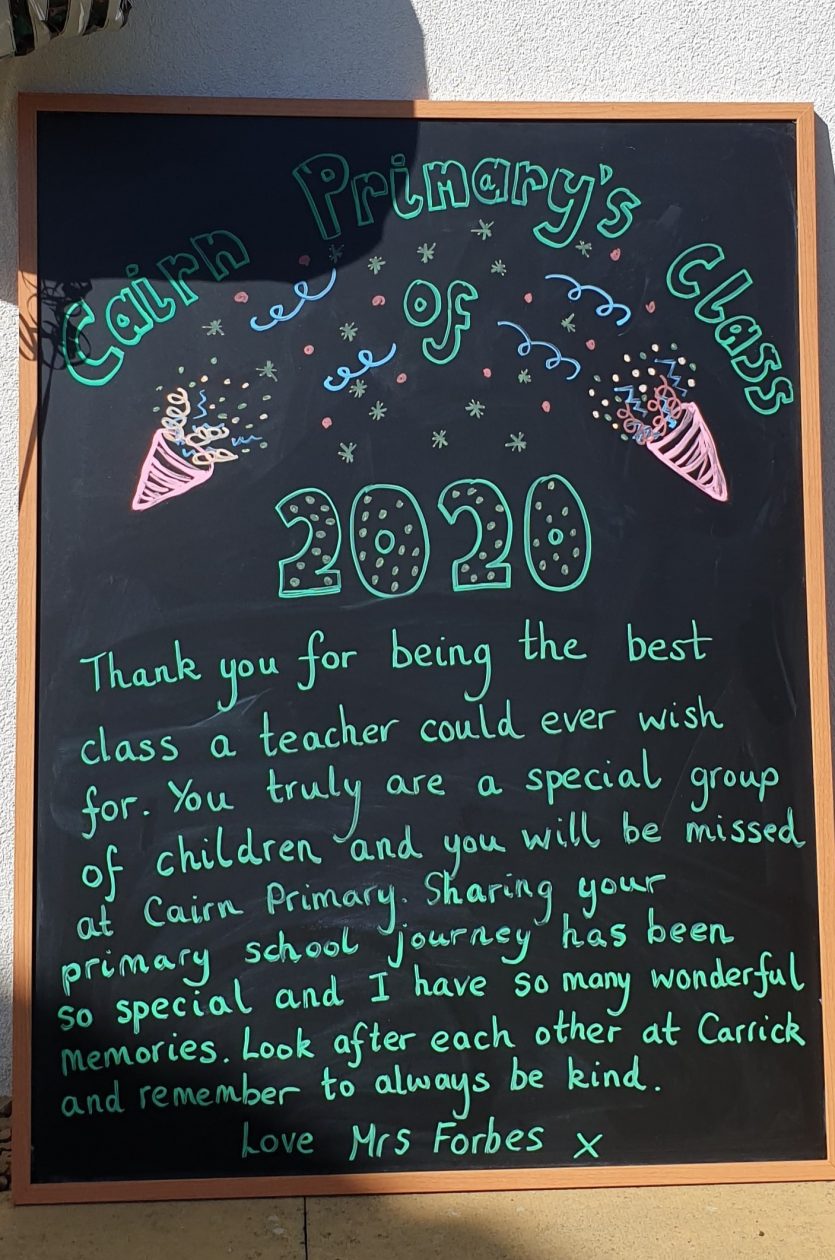 Cairn Primary's Class
of
2020
Thank you for being the best
class a teacher could ever wish
for. You truly are a special group
of children and you will be missed
at Cairn Primary. Sharing your
primary school journey has been
so special and I have so many wonderful
memories. Look after each other at Carrick
and remember to always be kind.
Love Mrs Forbes x